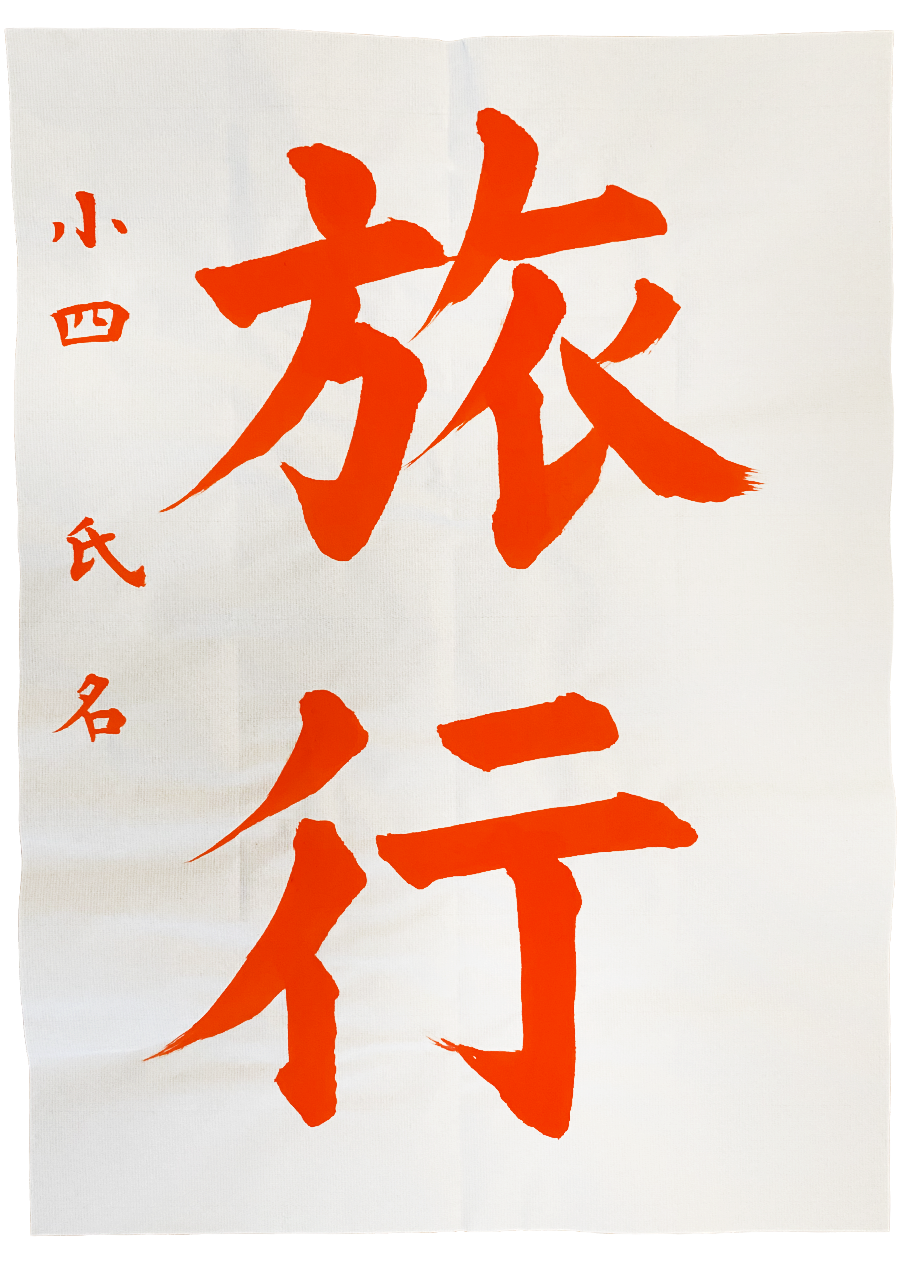 旅行
小四 氏名